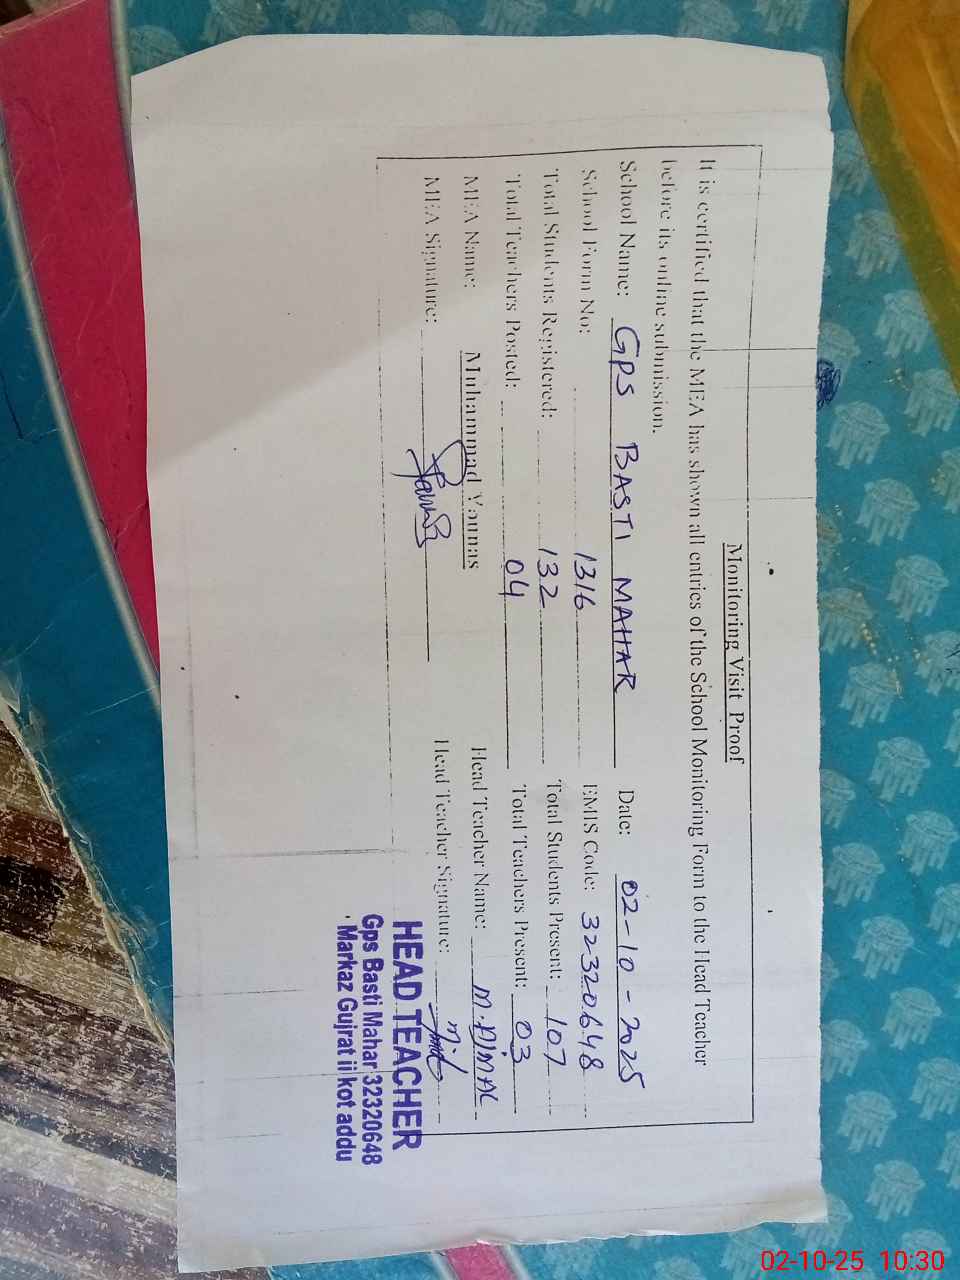 Monitoring Visit Proof
It is certified that the MEA has shown all entries of the School Monitoring Form to the Head Teacher
before its online submission.
School Name: GPS BASTI MAHAR Date: 02-10-2025
School Form No: 1316 EMIS Code: 32320648
Total Students Registered: 132 Total Students Present: 107
Total Teachers Posted: 04 Total Teachers Present: 03
MEA Name: Muhammad Younas Head Teacher Name: M.AJMAL
MEA Signature: Head Teacher Signature:
HEAD TEACHER
Gps Basti Mahar 32320648
Markaz Gujrat ii kot addu
02-10-25 10:30